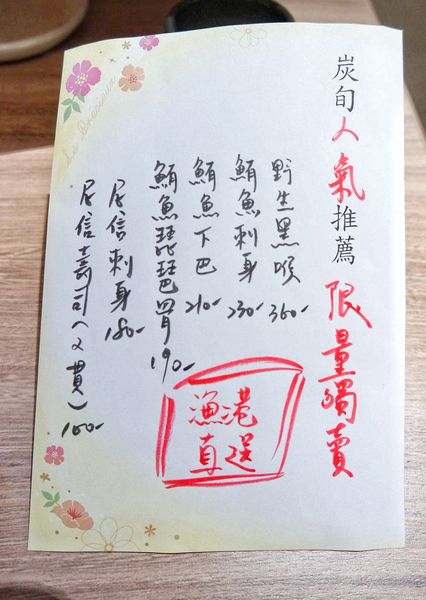 炭旬人氣推薦 限量獨賣
野生黑喉 360-
鮪魚刺身 230-
鮪魚下巴 210-
鮪魚琵琶骨 190-
居信刺身 180-
居信壽司(2貫) 100-
漁港
直送